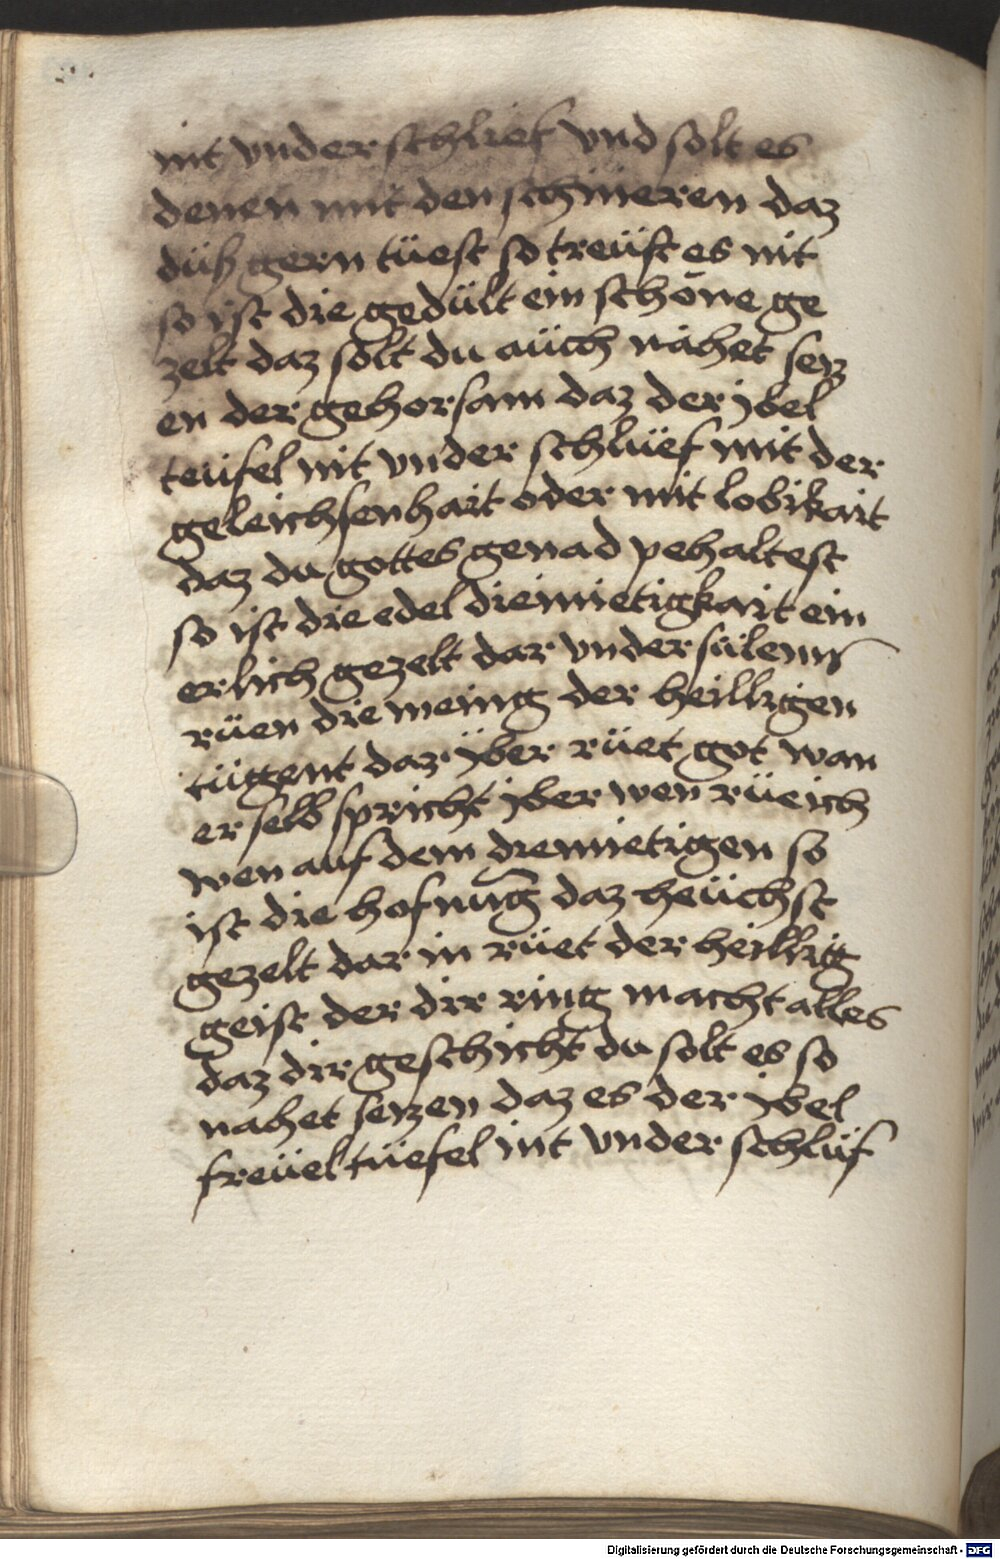 nit vnder schlief vnd solt es
denen mit den schnieren daz
düß gern tüest so treüft es nit
so ist die gedült ein schöne ge
zelt daz solt du aüch nahet sez
en der gehorsam daz der ybel
teüfel nit vnder schlüef mit der
geleichsenhait oder mit lobikait
daz du gottes genad pehaltest
so ist die edel diemietigkait ein
erlich gezelt dar vnder sülenn
rüen die mening der heilligen
tügent dar yber rüet got wan
er selb spricht yber wen rüe ich
wen auf dem diemietigen so
ist die hofnug daz heüchst
gezelt dar in rüet der heillig
geist der dir ring macht alles
daz dir geschicht du solt es so
nahet sezen daz es der ybel
freüel tüefel nit vnder schlüf
Digitalisierung gefördert durch die Deutsche Forschungsgemeinschaft - DFG